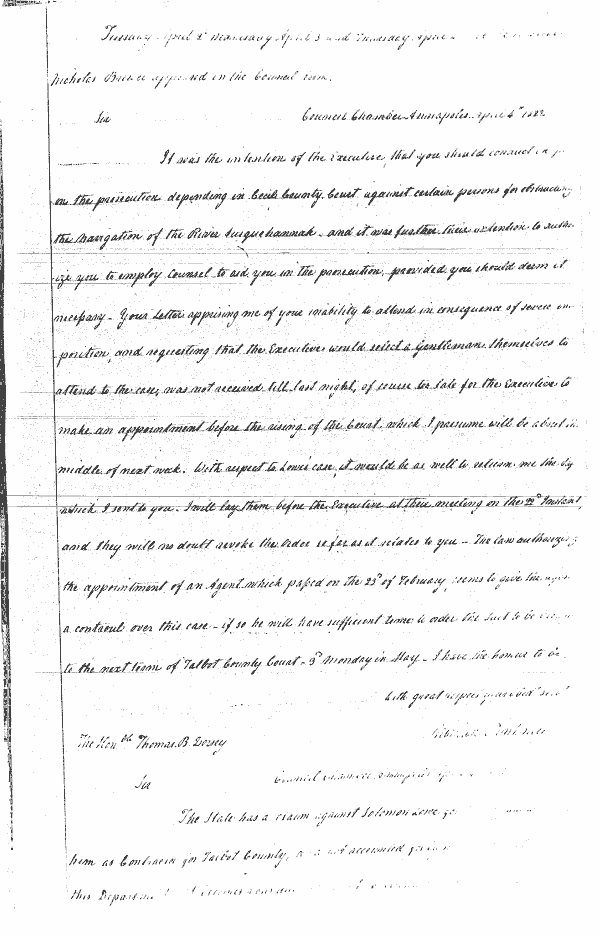 Tuesday April 2d Wednesday April 3 and Thursday April
Nicholas Brewer appeared in the Council room.
Sir Council Chamber Annapolis April 4th 1822
It was the intention of the Executive, that you should conduct in
on the prosecution depending in Cecil County Court against certain persons for obstructing
the Navigation of the River Susquehannah - and it was further their intention to autho
ize you to employ Counsel to aid you in the prosecution, provided you should deem it
necessary - Your Letter apprising me of your inability to attend in consequence of severe in
position, and requesting that the Executive would select a Gentleman themselves to
attend to the case, was not received till last night, of course too late for the Executive to
make an appointment before the rising of the Court, which I presume will be about
middle of next week. With respect to Lowes case, it would be as well to return me the
which I sent to you. I will lay them before the Executive at their meeting on the 22d Instant,
and they will no doubt revoke the order so far as it relates to you - The law authorizing
the appointment of an Agent which passed on the 23d of February, seems to give the
a controul over this case - if so he will have sufficient time to order the suit to be
to the next term of Talbot County Court - 3d Monday in May - I have the honour to be
with great respect
The Honble Thomas. B. Dorsey
Council Chamber Annapolis
Sir
The State has a claim against Solomon Lowe
him as Contractor for Talbot County, not accounted for
this Department